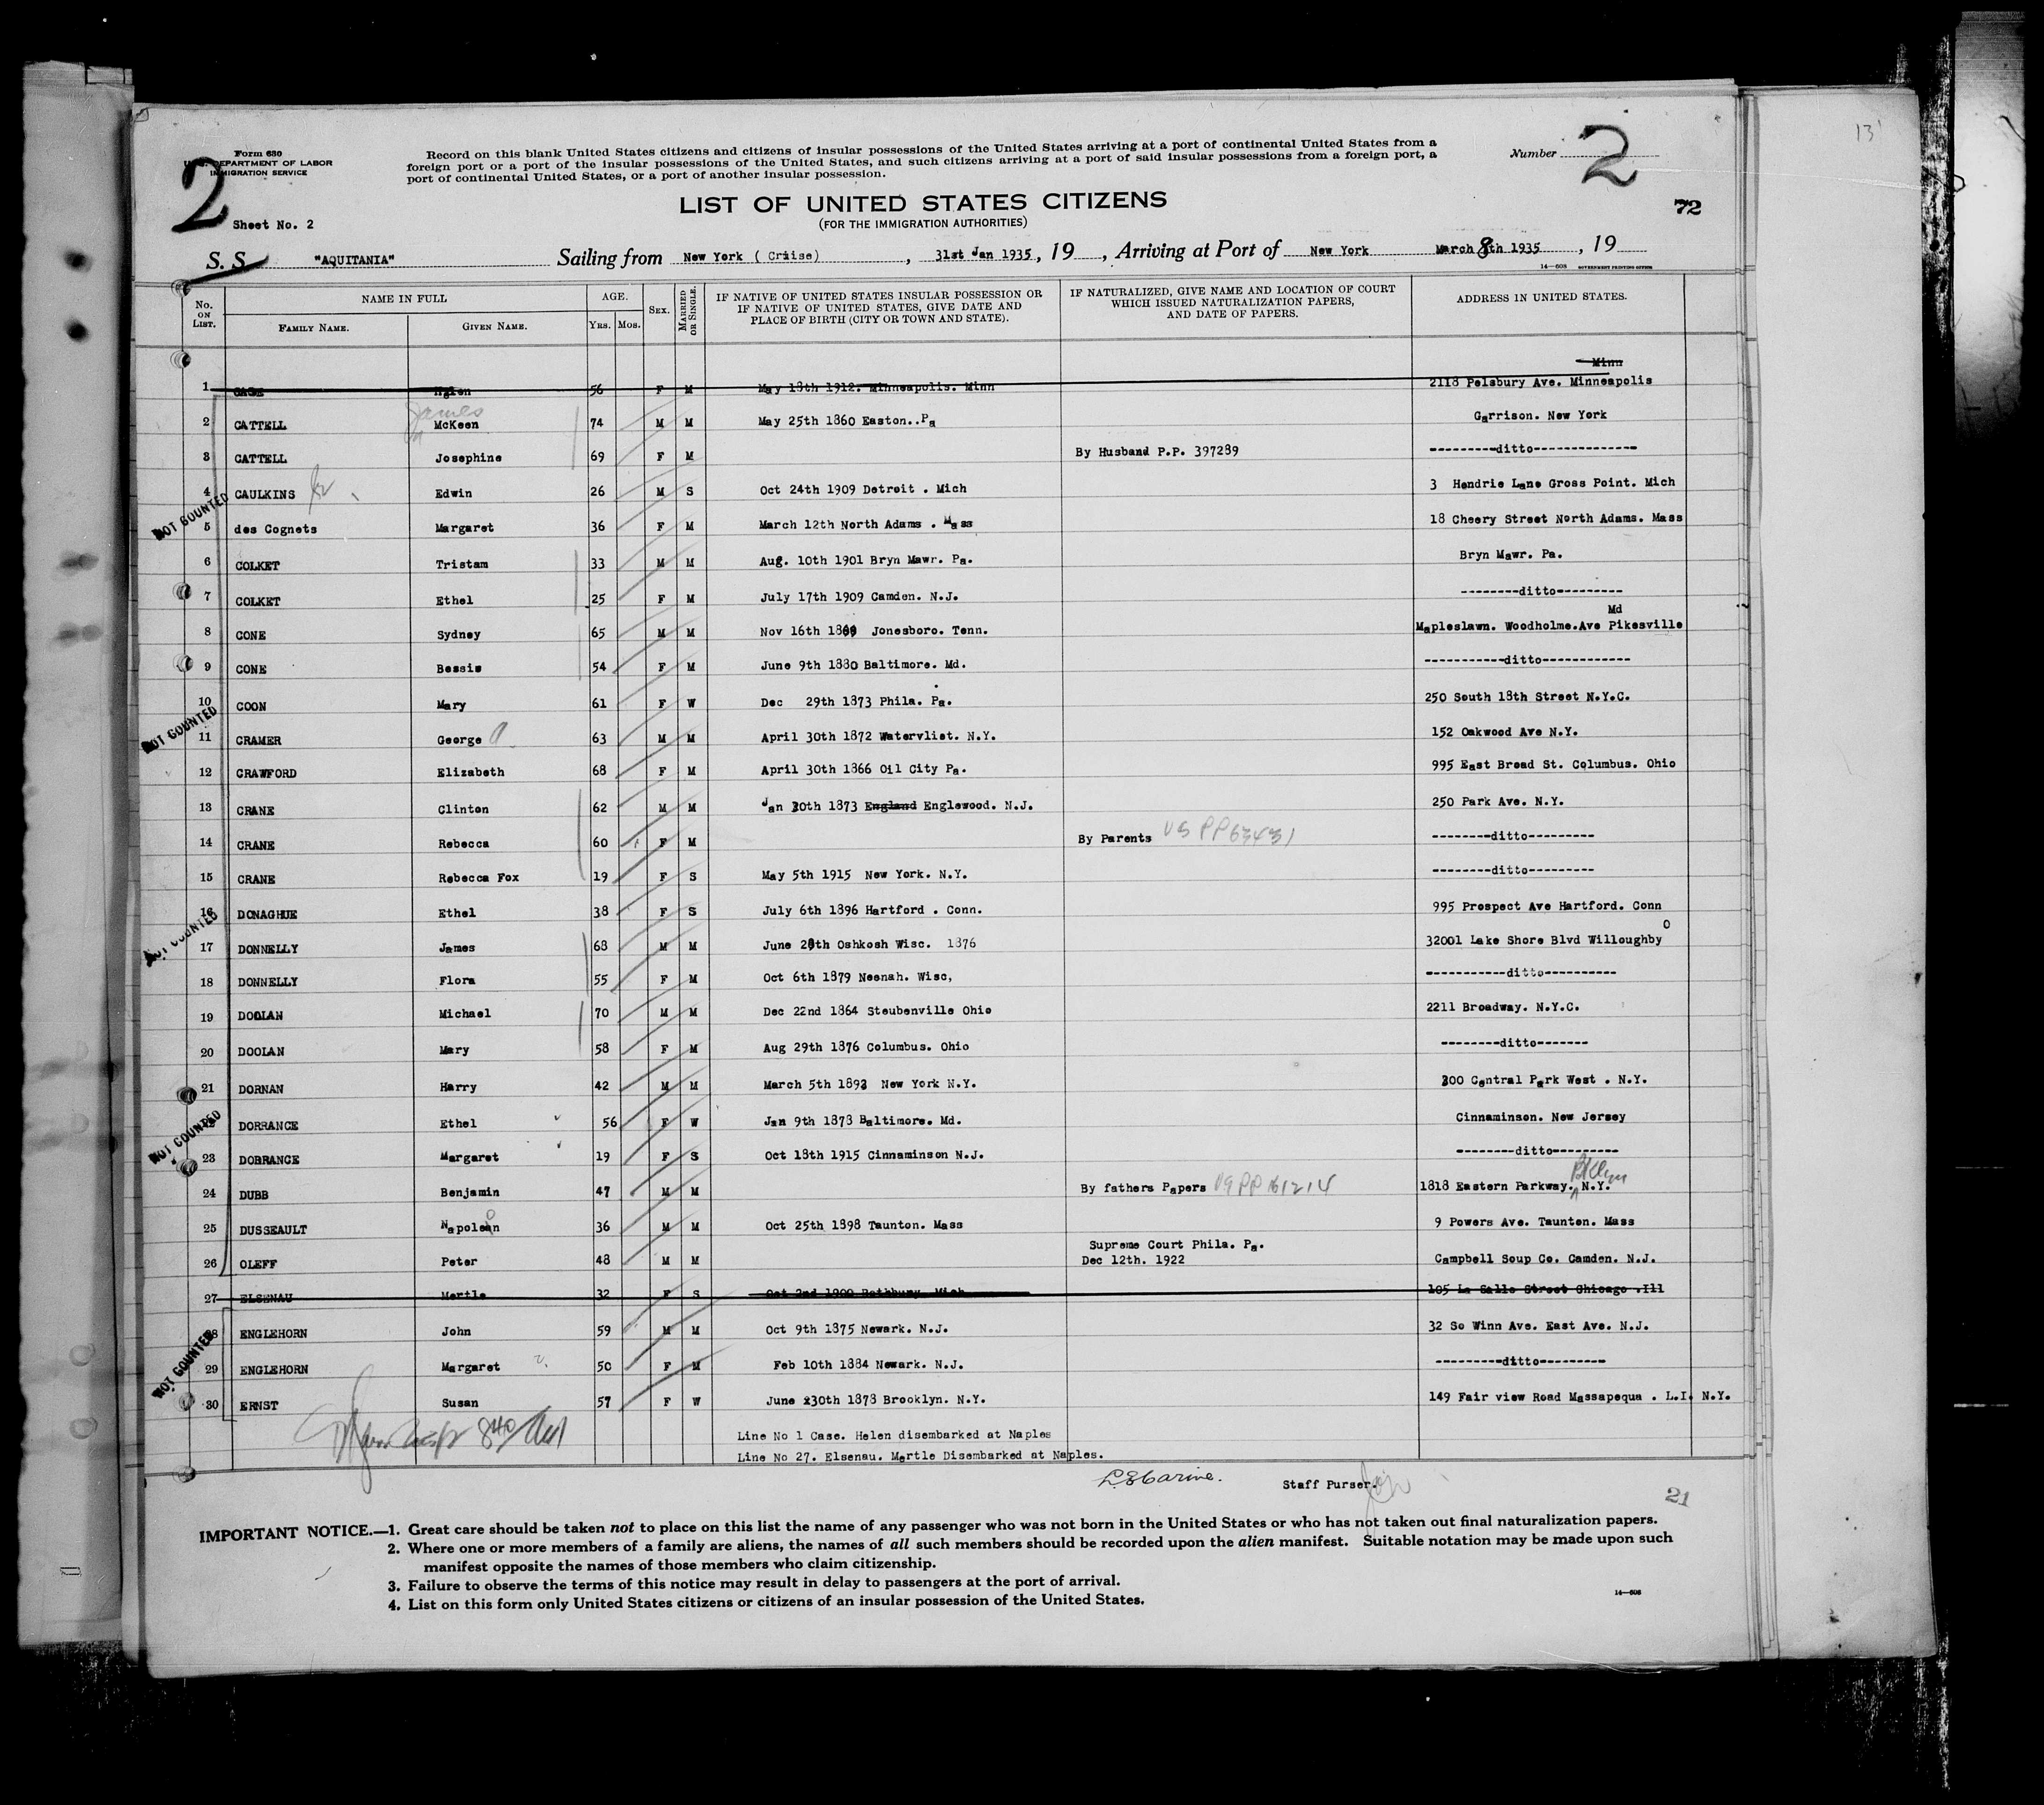 13
Form 630
U.S. DEPARTMENT OF LABOR
IMMIGRATION SERVICE
2
Sheet No. 2
Record on this blank United States citizens and citizens of insular possessions of the United States arriving at a port of continental United States from a
foreign port or a port of the insular possessions of the United States, and such citizens arriving at a port of said insular possessions from a foreign port, a
port of continental United States, or a port of another insular possession.
Number 2
LIST OF UNITED STATES CITIZENS
(FOR THE IMMIGRATION AUTHORITIES)
72
S. S. "AQUITANIA" Sailing from New York ( Cruise) , 31st Jan 1935 , 19 , Arriving at Port of New York March 8th 1935 , 19
14—608 GOVERNMENT PRINTING OFFICE
No. ON LIST. NAME IN FULL FAMILY NAME. GIVEN NAME. AGE. YRS. MOS. SEX. MARRIED OR SINGLE. IF NATIVE OF UNITED STATES INSULAR POSSESSION OR IF NATIVE OF UNITED STATES, GIVE DATE AND PLACE OF BIRTH (CITY OR TOWN AND STATE). IF NATURALIZED, GIVE NAME AND LOCATION OF COURT WHICH ISSUED NATURALIZATION PAPERS, AND DATE OF PAPERS. ADDRESS IN UNITED STATES.
Minn
1 CASE Helen 56 F M May 18th 1912. Minneapolis. Minn 2118 Pelsbury Ave. Minneapolis
2 CATTELL James McKeen 74 M M May 25th 1860 Easton..Pa Garrison. New York
3 CATTELL Josephine 69 F M By Husband P.P. 397289 ---------ditto-------------
4 CAULKINS Jr Edwin 26 M S Oct 24th 1909 Detroit . Mich 3 Hendrie Lane Gross Point. Mich
NOT COUNTED
5 des Cognets Margaret 36 F M March 12th North Adams . Mass 18 Cheery Street North Adams. Mass
6 COLKET Tristam 33 M M Aug. 10th 1901 Bryn Mawr. Pa. Bryn Mawr. Pa.
7 COLKET Ethel 25 F M July 17th 1909 Camden. N.J. --------ditto---------
Md
8 CONE Sydney 65 M M Nov 16th 1869 Jonesboro. Tenn. Mapleslawn. Woodholme.Ave Pikesville
9 CONE Bessie 54 F M June 9th 1880 Baltimore. Md. -----------ditto------------
10 COON Mary 61 F W Dec 29th 1873 Phila. Pa. 250 South 18th Street N.Y.C.
NOT COUNTED
11 CRAMER George A 63 M M April 30th 1872 Watervliet. N.Y. 152 Oakwood Ave N.Y.
12 CRAWFORD Elizabeth 68 F M April 30th 1866 Oil City Pa. 995 East Broad St. Columbus. Ohio
13 CRANE Clinton 62 M M Jan 30th 1873 England Englewood. N.J. 250 Park Ave. N.Y.
14 CRANE Rebecca 60 F M By Parents US PP63431 --------ditto---------
15 CRANE Rebecca Fox 19 F S May 5th 1915 New York. N.Y. --------ditto---------
16 DONAGHUE Ethel 38 F S July 6th 1896 Hartford . Conn. 995 Prospect Ave Hartford. Conn
NOT COUNTED
17 DONNELLY James 68 M M June 28th Oshkosh Wisc. 1876 32001 Lake Shore Blvd Willoughby O
18 DONNELLY Flora 55 F M Oct 6th 1879 Neenah. Wisc, -----------ditto----------
19 DOOLAN Michael 70 M M Dec 22nd 1864 Steubenville Ohio 2211 Broadway. N.Y.C.
20 DOOLAN Mary 58 F M Aug 29th 1876 Columbus. Ohio --------ditto-------
21 DORNAN Harry 42 M M March 5th 1892 New York N.Y. 300 Central Park West . N.Y.
22 DORRANCE Ethel 56 F W Jan 9th 1878 Baltimore. Md. Cinnaminson. New Jersey
NOT COUNTED
23 DORRANCE Margaret 19 F S Oct 18th 1915 Cinnaminson N.J. --------ditto---------
24 DUBB Benjamin 47 M M By fathers Papers US PP 161214 1818 Eastern Parkway. Bklyn N.Y.
25 DUSSEAULT Napoleon 36 M M Oct 25th 1898 Taunton. Mass 9 Powers Ave. Taunton. Mass
26 OLEFF Peter 48 M M Supreme Court Phila. Pa. Dec 12th. 1922 Campbell Soup Co. Camden. N.J.
27 ELSENAU Mertle 32 F S Oct 2nd 1900 Rothbury. Mich 105 La Salle Street Chicago .Ill
28 ENGLEHORN John 59 M M Oct 9th 1875 Newark. N.J. 32 So Winn Ave. East Ave. N.J.
NOT COUNTED
29 ENGLEHORN Margaret 50 F M Feb 10th 1884 Newark. N.J. ---------ditto---------
30 ERNST Susan 57 F W June 30th 1878 Brooklyn. N.Y. 149 Fair view Road Massapequa . L.I. N.Y.
Line No 1 Case. Helen disembarked at Naples
Line No 27. Elsenau. Mertle Disembarked at Naples.
Staff Purser.
21
IMPORTANT NOTICE.—1. Great care should be taken not to place on this list the name of any passenger who was not born in the United States or who has not taken out final naturalization papers.
2. Where one or more members of a family are aliens, the names of all such members should be recorded upon the alien manifest. Suitable notation may be made upon such
manifest opposite the names of those members who claim citizenship.
3. Failure to observe the terms of this notice may result in delay to passengers at the port of arrival.
4. List on this form only United States citizens or citizens of an insular possession of the United States.
14—608